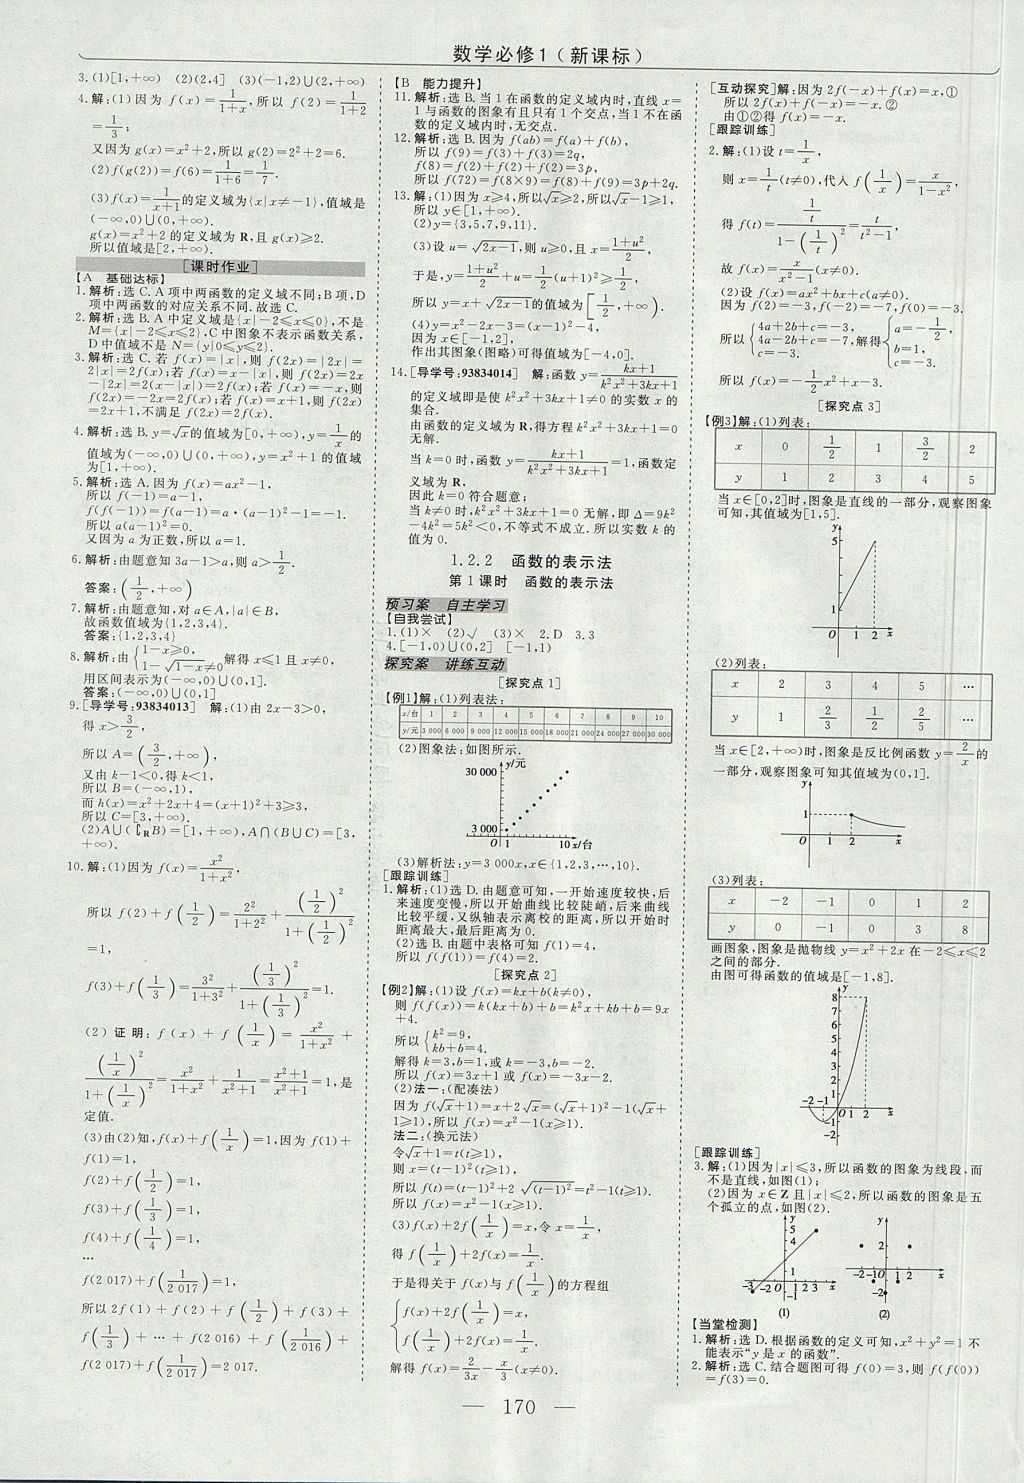 数学必修1(新课标)
3.(1)[1,+∞) (2)(2,4] (3)(-1,2)∪(2,+∞)
4.解:(1)因为 f(x)=1/(1+x),所以 f(2)=1/(1+2)
=1/3;
又因为 g(x)=x²+2,所以 g(2)=2²+2=6.
(2)f(g(2))=f(6)=1/(1+6)=1/7.
(3)f(x)=1/(x+1)的定义域为{x|x≠-1},值域是
(-∞,0)∪(0,+∞).
g(x)=x²+2 的定义域为 R,且 g(x)≥2.
所以值域是[2,+∞).
[课时作业]
【A 基础达标】
1.解析:选 C. A 项中两函数的定义域不同;B 项,D
项中两函数的对应关系不同.故选 C.
2.解析:选 B. A 中定义域是{x|-2≤x≤0},不是
M={x|-2≤x≤2},C 中图象不表示函数关系,
D 中值域不是 N={y|0≤y≤2}.
3.解析:选 C. 若 f(x)=|x|,则 f(2x)=|2x|=
2|x|=2f(x);若 f(x)=x-|x|,则 f(2x)=2x
-|2x|=2(x-|x|)=2f(x);若 f(x)=-x,则
f(2x)=-2x=2f(x);若 f(x)=x+1,则 f(2x)
=2x+1,不满足 f(2x)=2f(x).
4.解析:选 B. y=√x的值域为[0,+∞),y=1/x的
值域为(-∞,0)∪(0,+∞),y=x²+1 的值域
为[1,+∞).
5.解析:选 A.因为 f(x)=ax²-1,
所以 f(-1)=a-1,
f(f(-1))=f(a-1)=a·(a-1)²-1=-1.
所以 a(a-1)²=0.
又因为 a 为正数,所以 a=1.
6.解析:由题意知 3a-1>a,则 a>1/2.
答案:(1/2,+∞)
7.解析:由题意知,对 a∈A,|a|∈B,
故函数值域为{1,2,3,4}.
答案:{1,2,3,4}
8.解析:由{1-x≥0, 1-√(1-x)≠0 解得 x≤1 且 x≠0,
用区间表示为(-∞,0)∪(0,1].
答案:(-∞,0)∪(0,1]
9.[导学号:93834013] 解:(1)由 2x-3>0,
得 x>3/2,
所以 A=(3/2,+∞),
又由 k-1<0,得 k<1,
所以 B=(-∞,1),
而 h(x)=x²+2x+4=(x+1)²+3≥3,
所以 C=[3,+∞).
(2)A∪(∁RB)=[1,+∞),A∩(B∪C)=[3,
+∞).
10.解:(1)因为 f(x)=x²/(1+x²),
所以 f(2)+f(1/2)=2²/(1+2²)+(1/2)²/(1+(1/2)²)
=1,
f(3)+f(1/3)=3²/(1+3²)+(1/3)²/(1+(1/3)²)=1.
(2)证明:f(x)+f(1/x)=x²/(1+x²)+
(1/x)²/(1+(1/x)²)=x²/(1+x²)+1/(x²+1)=(x²+1)/(x²+1)=1,是
定值.
(3)由(2)知,f(x)+f(1/x)=1,因为 f(1)+
f(1)=1,
f(2)+f(1/2)=1,
f(3)+f(1/3)=1,
f(4)+f(1/4)=1,
…
f(2 017)+f(1/2 017)=1,
所以 2f(1)+f(2)+f(1/2)+f(3)+
f(1/3)+…+f(2 016)+f(1/2 016)+
f(2 017)+f(1/2 017)=2 017.
【B 能力提升】
11.解析:选 B.当 1 在函数的定义域内时,直线 x=
1 与函数的图象有且只有 1 个交点,当 1 不在函
数的定义域内时,无交点.
12.解析:选 B.因为 f(ab)=f(a)+f(b),
所以 f(9)=f(3)+f(3)=2q,
f(8)=f(2)+f(2)+f(2)=3p,
所以 f(72)=f(8×9)=f(8)+f(9)=3p+2q.
13.解:(1)因为 x≥4,所以√x≥2,所以√x-1≥1,
所以 y∈[1,+∞).
(2)y={3,5,7,9,11}.
(3)设 u=√(2x-1),则 u≥0,且 x=(1+u²)/2,
于是,y=(1+u²)/2+u=1/2(u+1)²≥1/2,
所以 y=x+√(2x-1)的值域为[1/2,+∞).
(4)y=x²-2x-3=(x-1)²-4,
因为 x∈[-1,2],
作出其图象(图略)可得值域为[-4,0].
14.[导学号:93834014] 解:函数 y=(kx+1)/(k²x²+3kx+1)
的定义域即是使 k²x²+3kx+1≠0 的实数 x 的
集合.
由函数的定义域为 R,得方程 k²x²+3kx+1=0
无解.
当 k=0 时,函数 y=(kx+1)/(k²x²+3kx+1)=1,函数定
义域为 R,
因此 k=0 符合题意;
当 k≠0 时,k²x²+3kx+1=0 无解,即 Δ=9k²
-4k²=5k²<0,不等式不成立.所以实数 k 的
值为 0.
1.2.2 函数的表示法
第 1 课时 函数的表示法
预习案 自主学习
[自我尝试]
1.(1)× (2)√ (3)× 2.D 3.3
4.[-1,0)∪(0,2] [-1,1)
探究案 讲练互动
[探究点 1]
[例1]解:(1)列表法:
x/台 1 2 3 4 5 6 7 8 9 10
y/元 3 000 6 000 9 000 12 000 15 000 18 000 21 000 24 000 27 000 30 000
(2)图象法:如图所示.
y/元
30 000
3 000
O 1 10 x/台
(3)解析法:y=3 000x,x∈{1,2,3,…,10}.
[跟踪训练]
1.解析:(1)选 D.由题意可知,一开始速度较快,后
来速度变慢,所以开始曲线比较陡峭,后来曲线
比较平缓,又纵轴表示离校的距离,所以开始时
距离最大,最后距离为 0.
(2)选 B.由题中表格可知 f(1)=4,
所以 f(f(1))=f(4)=2.
[探究点 2]
[例2]解:(1)设 f(x)=kx+b(k≠0),
则 f(f(x))=k(kx+b)+b=k²x+kb+b=9x
+4.
所以{k²=9, kb+b=4.
解得 k=3,b=1,或 k=-3,b=-2.
所以 f(x)=3x+1 或 f(x)=-3x-2.
(2)法一:(配凑法)
因为 f(√x+1)=x+2√x=(√x+1)²-1(√x+
1≥1),所以 f(x)=x²-1(x≥1).
法二:(换元法)
令√x+1=t(t≥1),
则 x=(t-1)²(t≥1),
所以 f(t)=(t-1)²+2√(t-1)²=t²-1(t≥1).
所以 f(x)=x²-1(x≥1).
(3)f(x)+2f(1/x)=x,令 x=1/x,
得 f(1/x)+2f(x)=1/x.
于是得关于 f(x)与 f(1/x)的方程组
{f(x)+2f(1/x)=x,
f(1/x)+2f(x)=1/x.
解得 f(x)=2/3x-x/3(x≠0).
[互动探究]解:因为 2f(-x)+f(x)=x,①
所以 2f(x)+f(-x)=-x.②
由①②得 f(x)=-x.
[跟踪训练]
2.解:(1)设 t=1/x,
则 x=1/t(t≠0),代入 f(1/x)=x/(1-x²),
得 f(t)=(1/t)/(1-(1/t)²)=t/(t²-1),
故 f(x)=x/(x²-1)(x≠0).
(2)设 f(x)=ax²+bx+c(a≠0).
因为 f(2)=-3,f(-2)=-7,f(0)=-3.
所以{4a+2b+c=-3, 4a-2b+c=-7, c=-3. 解得{a=-1/2, b=1, c=-3.
所以 f(x)=-1/2x²+x-3.
[探究点 3]
[例3]解:(1)列表:
x 0 1/2 1 3/2 2
y 1 2 3 4 5
当 x∈[0,2]时,图象是直线的一部分,观察图象
可知,其值域为[1,5].
y
5
1
O 1 2 x
(2)列表:
x 2 3 4 5 …
y 1 2/3 1/2 2/5 …
当 x∈[2,+∞)时,图象是反比例函数 y=2/x的
一部分,观察图象可知其值域为(0,1].
y
1
O 1 2 x
(3)列表:
x -2 -1 0 1 2
y 0 -1 0 3 8
画图象,图象是抛物线 y=x²+2x 在-2≤x≤2
之间的部分.
由图可得函数的值域是[-1,8].
y
8
7
6
5
4
3
2
1
-2 -1 O 1 2 x
-1
-2
[跟踪训练]
3.解:(1)因为|x|≤3,所以函数的图象为线段,而
不是直线,如图(1);
(2)因为 x∈Z 且|x|≤2,所以函数的图象是五
个孤立的点,如图(2).
y
5
4
1
-3 -2 O 1 2 3 x
-1
(1)
y
2
-2 -1 O 1 2 x
-2
(2)
[当堂检测]
1.解析:选 D.根据函数的定义可知,x²+y²=1 不
能表示“y 是 x 的函数”.
2.解析:选 C.结合题图可得 f(0)=3,则 f(f(0))
=f(3)=0.
— 170 —